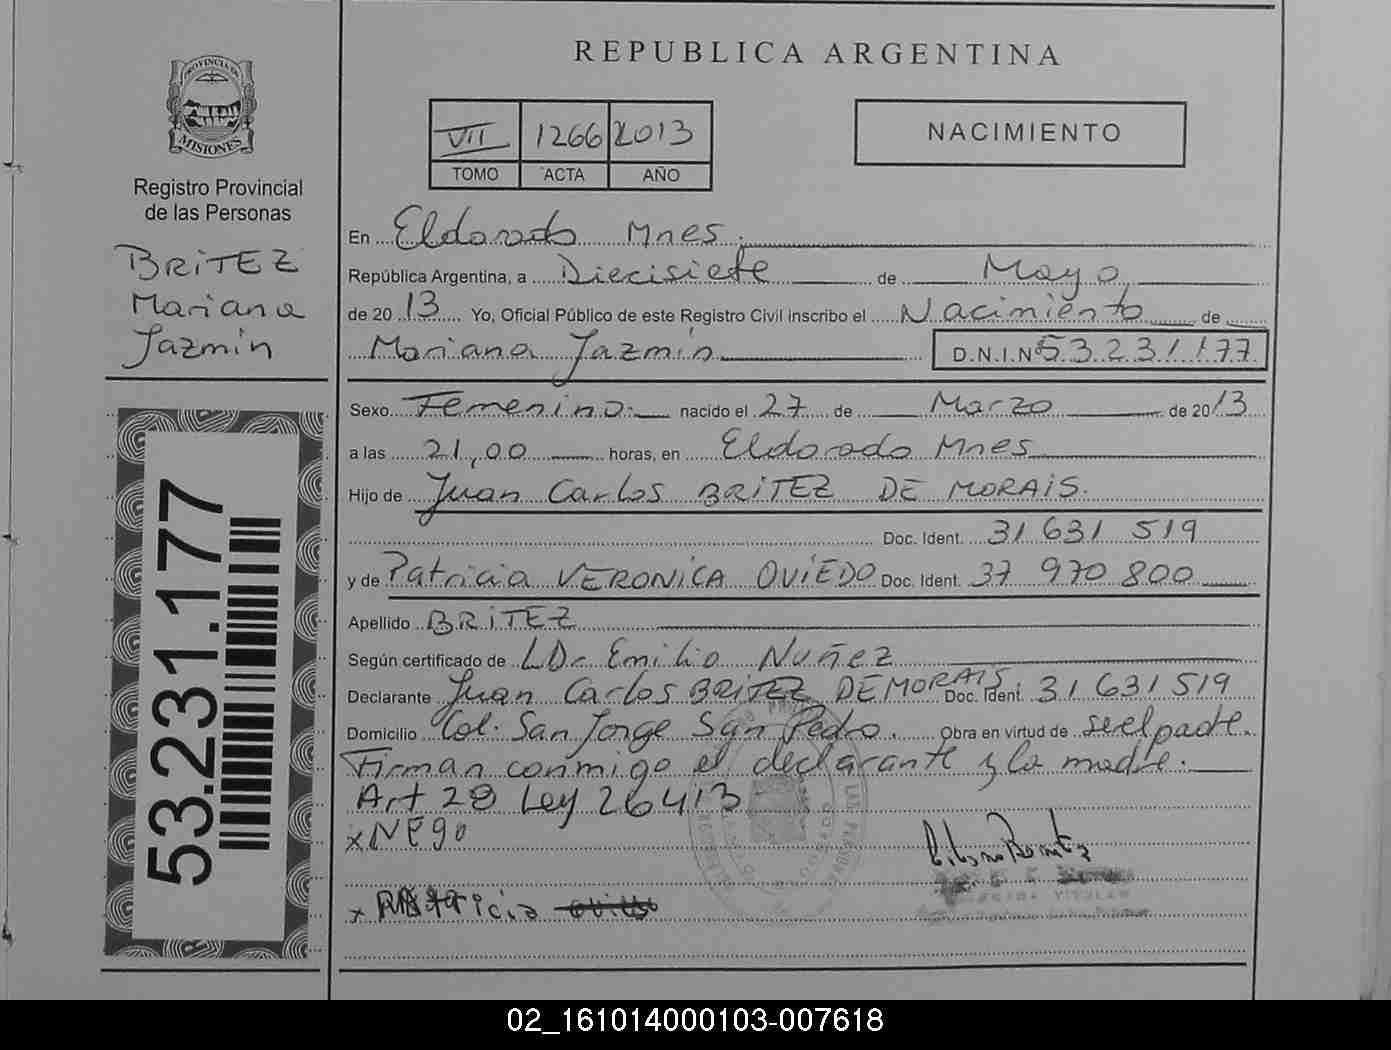 REPUBLICA ARGENTINA
PROVINCIA DE
MISIONES
Registro Provincial
de las Personas
BRITEZ
Mariana
Jazmín
53.231.177
VII 1266 2013
TOMO ACTA AÑO
NACIMIENTO
En Eldorado Mnes.
República Argentina, a Diecisiete de Mayo
de 2013 Yo, Oficial Público de este Registro Civil inscribo el Nacimiento de
Mariana Jazmín D.N.I.Nº 53231177
Sexo Femenino. nacido el 27 de Marzo de 2013
a las 21,00 horas, en Eldorado Mnes
Hijo de Juan Carlos BRITEZ DE MORAIS.
Doc. Ident. 31 631 519
y de Patricia VERONICA OVIEDO Doc. Ident. 37 970 800
Apellido BRITEZ
Según certificado de LDr Emilio Nuñez
Declarante Juan Carlos BRITEZ DE MORAIS Doc. Ident. 31 631 519
Domicilio Col. San Jorge San Pedro. Obra en virtud de ser el padre.
Firman conmigo el declarante y la madre.
Art 28 Ley 26413
x NEgo
x Patricia
02_161014000103-007618